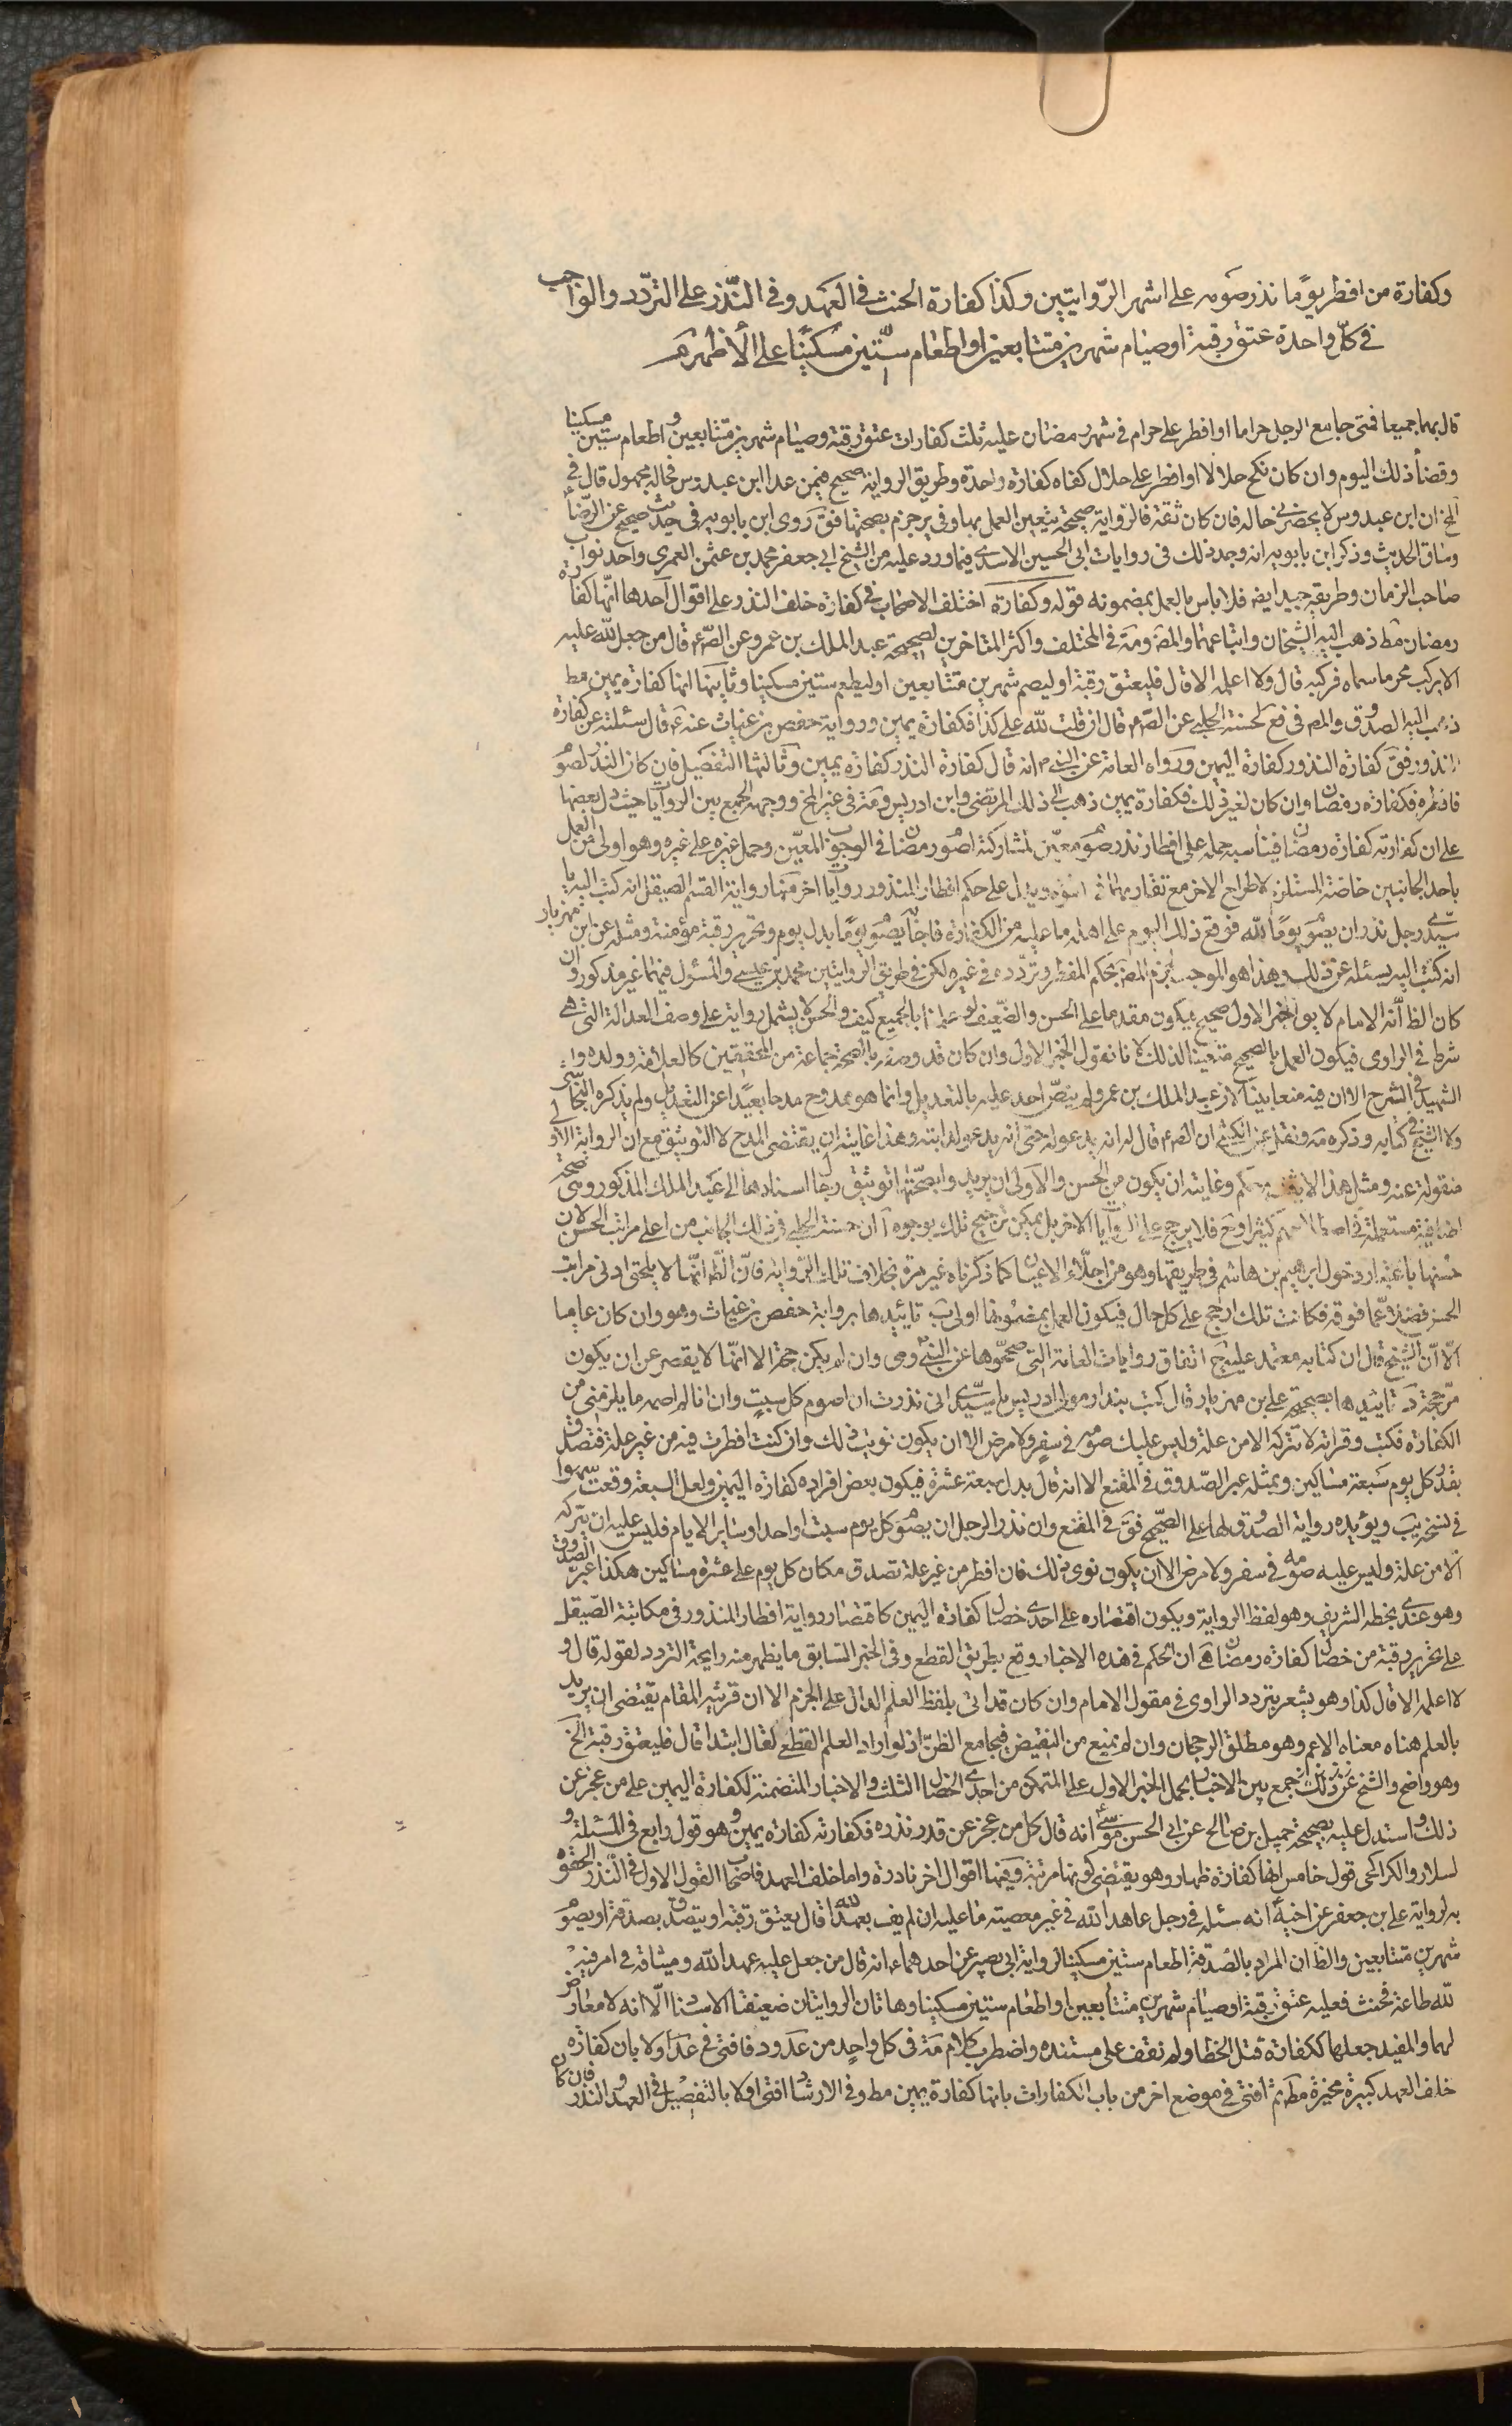 وكفارة من افطر يومًا نذر صومه على اشهر الرّوايتين وكذا كفارة الحنث فى العهد وفى النّذر على التردّد والواجب
فى كلّ واحدة عتق رقبة او صيام شهرين متتابعين او اطعام ستّين مسكينًا على الأظهر
قال بهما جميعا فمتى جامع الرجل حراما او افطر على حرام فى شهر رمضان عليه ثلث كفارات عتق رقبة وصيام شهرين متتابعين واطعام ستين مسكينا
وقضأ ذلك اليوم وان كان نكح حلالا او افطر على حلال كفاه كفارة واحدة وطريق الرواية صحيح فيمن عدا ابن عبدوس فحاله مجهول قال فى
الخ ان ابن عبدوس لا يحضرنى حاله فان كان ثقة فالرواية صحيحة يتعين العمل بها وفى ير جزم بصحتها فق روى ابن بابويه فى حديث صحيح عن الرضا
وساق الحديث وذكر ابن بابويه انه وجد ذلك فى روايات ابى الحسين الاسدى فيما ورد عليه من الشيخ ابى جعفر محمد بن عثمن العمرى واحد نواب
صاحب الزمان وطريقه جيد ايضه فلا باس بالعمل بمضمونه قوله وكفارة اختلف الاصحاب فى كفارة خلف النذر على اقوال احدها انّها كفارة
رمضان مط ذهب اليه الشيخان واتباعهما والمص ومة فى المختلف واكثر المتاخرين لصحيحة عبد الملك بن عمرو عن الص م قال من جعل لله عليه
الا يركب محرما سماه فركبه قال ولا اعلمه الا قال فليعتق رقبة او ليصم شهرين متتابعين او ليطعم ستين مسكينا وثانيها انها كفارة يمين مط
ذهب اليه الصدوق والمص فى فع لحسنة الحلبى عن الص م قال ان قلت لله على كذا فكفارة يمين ورواية حفص بن غياث عنه م قال سئلته عن كفارة
النذور فق كفارة النذور كفارة اليمين ورواه العامة عن النبى م انه قال كفارة النذر كفارة يمين وثالثها التفصيل فان كان النذر لصوم
فافطره فكفارة رمضان وان كان لغير ذلك فكفارة يمين ذهب الى ذلك المرتضى وابن ادريس ومة فى غير المخ ووجهه الجمع بين الروايات حيث دل بعضها
على ان كفارته كفارة رمضان فيناسبه حمله على افطار نذر صوم معيّن لمشاركته لصوم رمضان فى الوجوب المعيّن وحمل غيره على غيره وهو اولى من العمل
باحد الجانبين خاصة المستلزم لاطراح الاخر مع تقاربهما فى القوة ويدل على حكم افطار المنذور روايات اخر منها رواية القسم الصيقل انه كتب اليه يا
سيّدى رجل نذر ان يصوم يومًا لله فوقع ذلك اليوم على اهله ما عليه من الكفارة فاجاب يصوم يومًا بدل يوم وتحرير رقبة مؤمنة ومثله عن ابن مهزيار
انه كتب اليه يسئله عن ذلك وهذا هو الموجب لجزم المص بحكم المفطر وتردّده فى غيره لكن فى طريق الروايتين محمد بن عيسى والمسئول فيهما غير مذكور وان
كان الظ انّه الامام لا يق الخبر الاول صحيح فيكون مقدما على الحسن والضعيف لو عملنا بالجميع كيف والحسن لا يشتمل رواية على وصف العدالة التى هى
شرط فى الراوى فيكون العمل بالصحيح متعينا لذلك لانا نقول الخبر الاول وان كان قد وصفه بالصحة جماعة من المحققين كالعلامة وولده و
الشهيد فى الشرح الا ان فيه منعا بيّنا لان عبد الملك بن عمرو لم ينصّ احد عليه بالتعديل وانما هو ممدوح مدحا بعيدا عن التعديل ولم يذكره النجاشى
ولا الشيخ فى كتابه وذكره مة ونقل عن الكشى ان الص م قال له انه يدعو له حتى انه يدعو لدابته وهذا غايته ان يقتضى المدح لا التوثيق مع ان الرواية الاو
منقولة عنه ومثل هذا لا يثبت به حكم وغايته ان يكون من الحسن والاولى ان يريد وا بصحّتها توثيق رجال اسنادها الى عبد الملك المذكور وهى صحة
اضافية مستعملة فى اصطلاحهم كثيرا وح فلا يرجح على الروايات الاخر بل يمكن ترجيح تلك بوجوه آ ان حسنة الحلبى فى ذلك الجانب من اعلى مراتب الحسن لان
حسنها باعتبار دخول ابرهيم بن هاشم فى طريقها وهو من اجلاء الاعيان كما ذكرناه غير مرة بخلاف تلك الرّواية فانّ الظّ انّها لا يلحق ادنى مراتب
الحسن فضلا عمّا فوقه فكانت تلك ارجح على كل حال فيكون العمل بمضمونها اولى ب تائيدها برواية حفص بن غياث وهو وان كان عاميا
الّا انّ الشيخ قال ان كتابه معتمد عليه ج اتفاق روايات العامة التى صححوها عن النبى م وهى وان لم يكن حجة الا انّها لا يقصر عن ان يكون
مرّجحة د تائيدها بصحيحة على بن مهزيار قال كتب بندار مولى ادريس يا سيّدى انى نذرت ان اصوم كل سبتٍ وان انا لم اصمه ما يلزمنى من
الكفارة فكتب وقراته لا تتركه الا من علة وليس عليك صومه فى سفرٍ ولا مرض الا ان يكون نويت ذلك وان كنت افطرت فيه من غير علة فتصدق
بقدر كل يوم سبعة مساكين وبمثله عبر الصّدوق فى المقنع الا انه قال بدل سبعة عشرة فيكون بعض افراده كفارة اليمين ولعل السبعة وقعت سهوا
فى نسخ يب ويؤيده رواية الصدوق لها على الصّحيح فق فى المقنع وان نذر الرجل ان يصوم كل يوم سبت او احد او سائر الايام فليس عليه ان يتركه
الا من علة وليس عليه صومه فى سفر ولا مرض الا ان يكون نوى ذلك فان افطر من غير علة تصدق مكان كل يوم على عشرة مساكين هكذا عبر الصدوق
وهو عندى بخطه الشريف وهو لفظ الرواية ويكون اقتصاره على احدى خصال كفارة اليمين كاقتصار رواية افطار المنذور فى مكاتبة الصّيقل
على تحرير رقبة من خصال كفارة رمضان ه ان الحكم فى هذه الاخبار وقع بطريق القطع وفى الخبر السّابق ما يظهر منه رايحة التردد لقوله قال و
لا اعلمه الا قال كذا وهو يشعر بتردد الراوى فى مقول الامام وان كان قد اتى بلفظ العلم الدال على الجزم الا ان قرينة المقام يقتضى ان يريد
بالعلم هنا معناه الاعم وهو مطلق الرجحان وان لم يمنع من النقيض فيجامع الظنّ اذ لو اراد العلم القطعى لقال ابتدا قال فليعتق رقبة الخ
وهو واضح والشيخ جمع بين الاخبار بحمل الخبر الاول على المتمكن من احدى الخصال الثلث والاخبار المتضمنة لكفارة اليمين على من عجز عن
ذلك واستدل عليه بصحيحة جميل بن صالح عن ابى الحسن موسى انه قال كل من عجز عن قدر نذره فكفارته كفارة يمين وهو قول رابع فى المسئلة و
لسلار والكراجكى قول خامس انها كفارة ظهار وهو يقتضى كونها مرتبة وفيها اقوال اخر نادرة واما خلف العهد فاصحاب القول الاول فى النّذر الحقوه
به لرواية على بن جعفر عن اخيه انه سئله فى رجل عاهد الله فى غير معصيته ما عليه ان لم يف بعهد الله قال يعتق رقبة او يتصدق بصدقة او يصوم
شهرين متتابعين والظ ان المراد بالصّدقة اطعام ستين مسكينا لرواية ابى بصير عن احدهما م انه قال من جعل عليه عهد الله وميثاقه فى امر فيه
لله طاعة فحنث فعليه عتق رقبة او صيام شهرين متتابعين او اطعام ستين مسكينا وهاتان الروايتان ضعيفتا الاسناد الّا انه لا معارض
لهما والمفيد جعلها ككفارة قتل الخطا ولم نقف على مستنده واضطرب كلام مة فى كل واحدٍ من عد ود فافتى فى عد اولا بان كفارة
خلف العهد كبيرة مخيرة مط ثم افتى فى موضع اخر من باب الكفارات بانها كفارة يمين مط وفى الارشاد افتى اولا بالتفصيل فى العهد والنذر فان كان